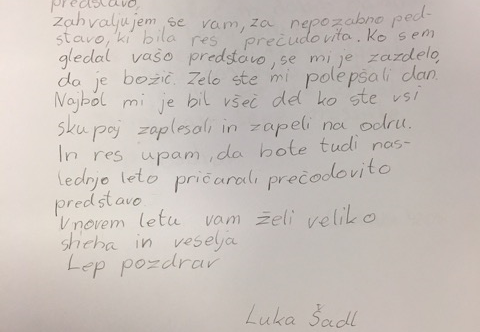 predstavo,
zahvaljujem se vam, za nepozabno ped-
stavo, ki bila res prečudovita. Ko sem
gledal vašo predstavo, se mi je zazdelo,
da je božič. Zelo ste mi polepšali dan.
Najbol mi je bil všeč del ko ste vsi
skupaj zaplesali in zapeli na odru.
In res upam, da bote tudi nas-
lednjo leto pričarali prečodovito
predstavo.
V novem letu vam želi veliko
smeha in veselja
Lep pozdrav
Luka Šadl